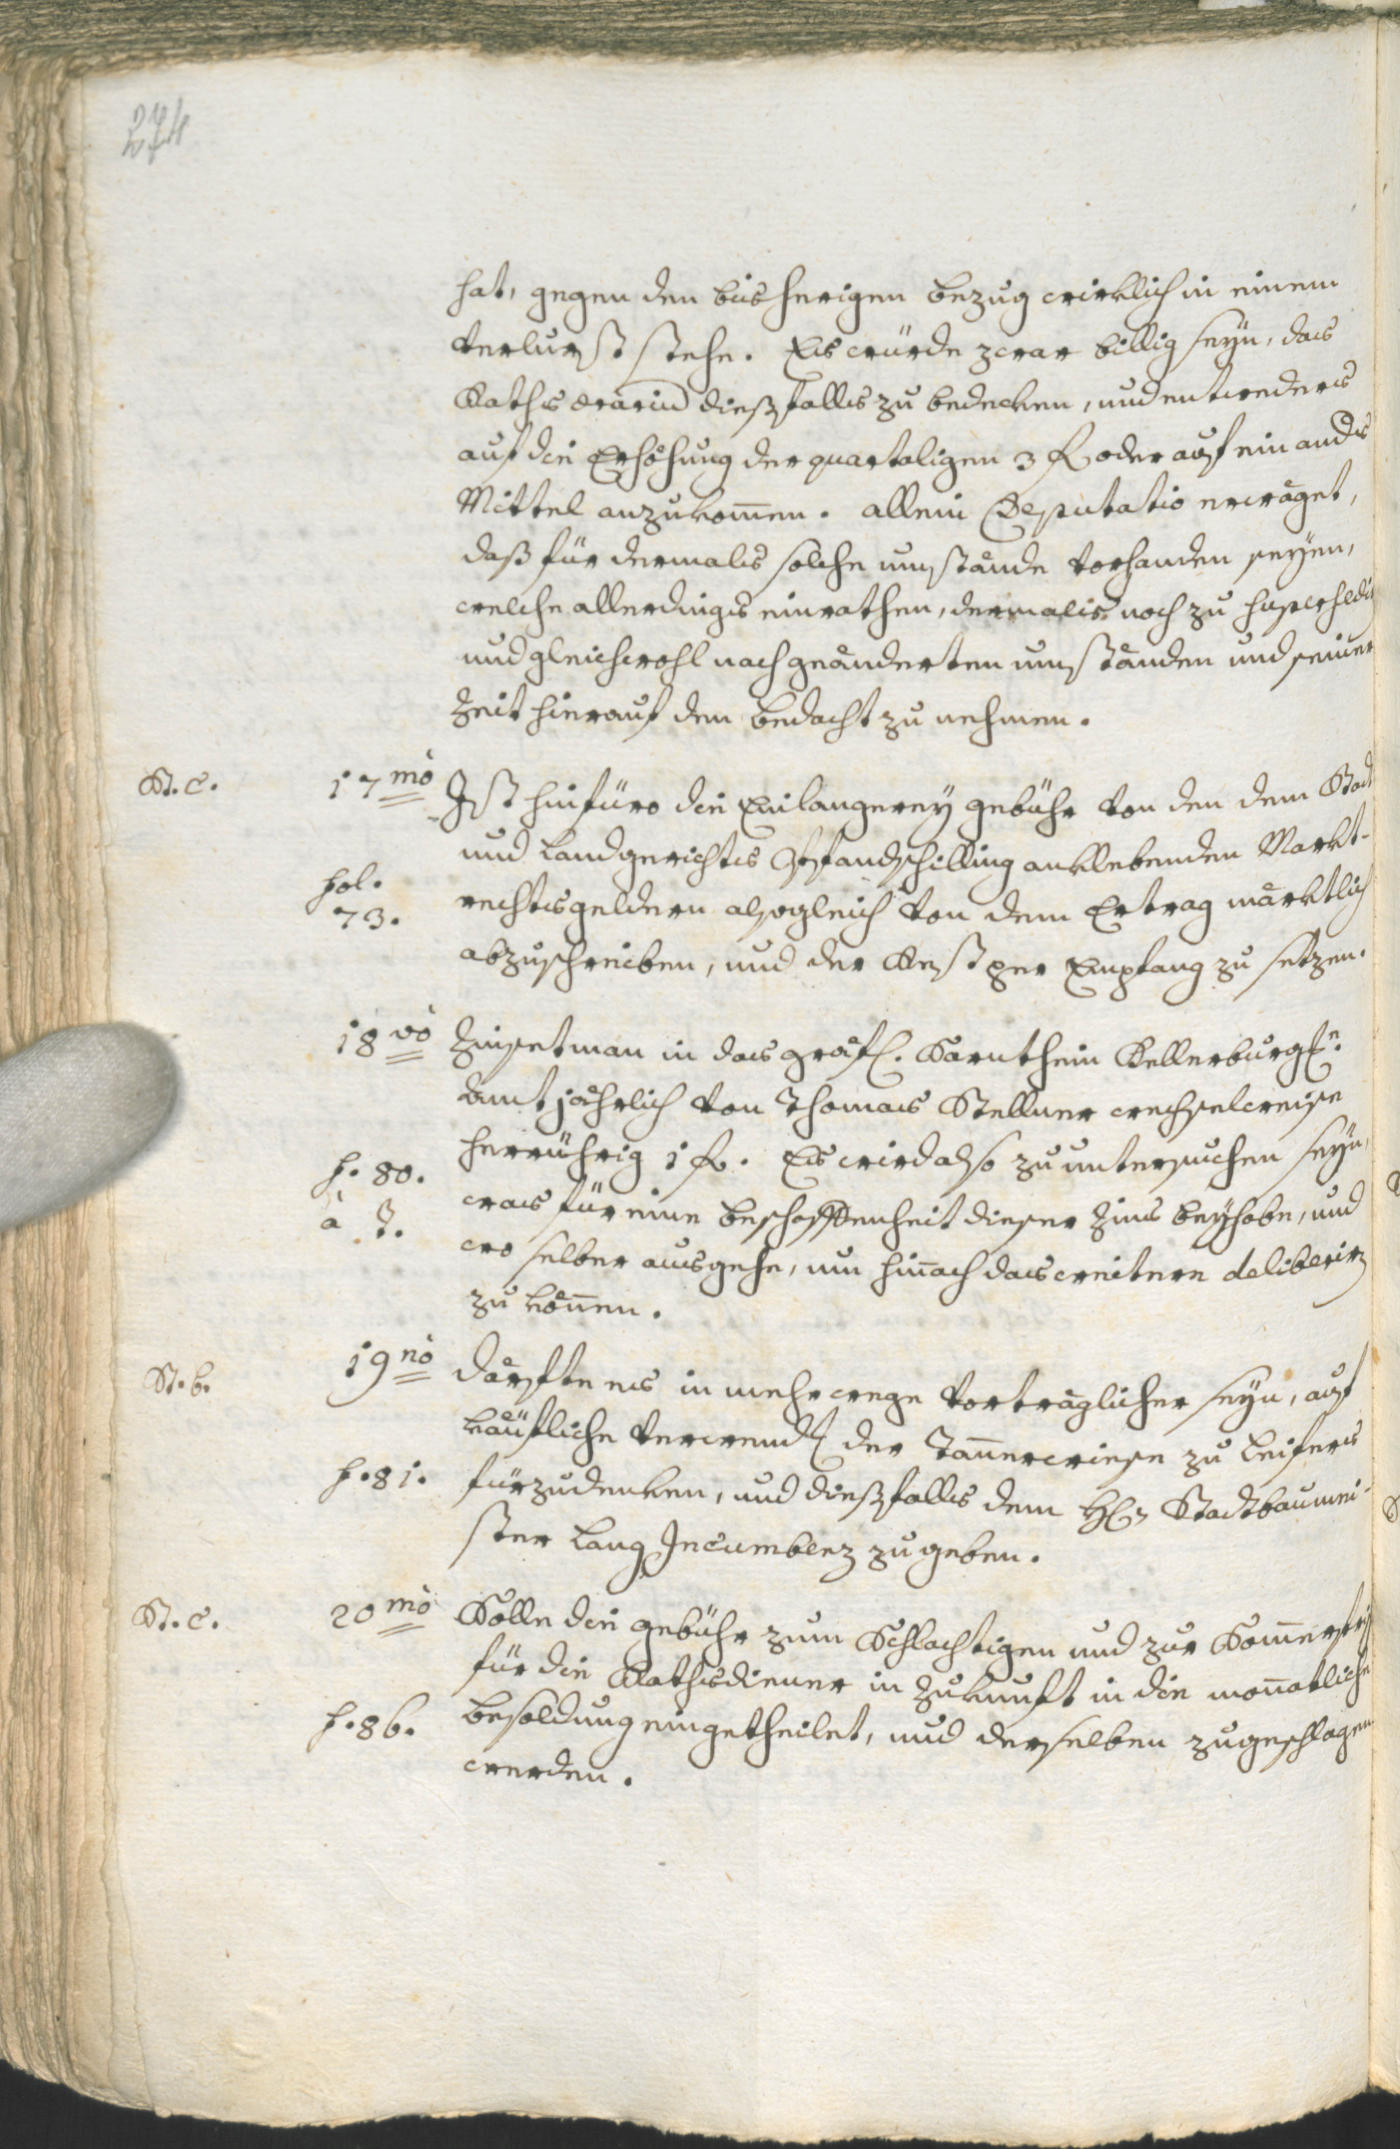 274
hat, gegen den bisherigen bezug wirklich in einem
verlurst stehe. Es würde zwar billig seyn, das
Raths ærarium dießfalls zu bedecken, und entweders
auf die Erhöhung der quartaligen 3 f. oder auf ein anders
Mittel anzukom̅en. allein Deputatio erwäget,
daß für dermals solche umstände vorhanden seyen,
welche allerdings einrathen, dermalis noch zu
und gleichwohl nach geänderten umständen und seiner
Zeit hierauf den bedacht zu nehmen.
St. C. 17mò Ist hinfüro die Einlangerey gebühr von den dem Stadt
und Landgerichts anklebenden Markt-
fol. 73. rechtsgeldern alsogleich von dem Ertrag märktlich
abzuschreiben, und der Rest per Empfang zu setzen.
18vò Zinset man in das gräfl. Sarnthein Kellerburgl.
Amt jährlich von Thomas Stellner wechselweise
f. 80. herrührig 1 f. Es wird also zu untersuchen seyn,
à 3. was für eine beschaffenheit dieser Zins beyhabe, und
wo selber ausgehe, um hin̅ach das weitere deliberirn
zu kön̅en.
St. b. 19nò därfte es in mehrwege vorträglicher seyn, auf
käufliche verwend. der Tan̅erwiese zu Leifers
f. 81. fürzudenken, und dießfalls dem Hl. Stadtbaumei-
ster Lang Incumbenz zu geben.
St. C. 20mò Solle die gebühr zum Schlachtigen und zur
für die Rathsdiener in Zukunft in die mon̅atliche
f. 86. besoldung eingetheilet, und derselben zugeschlagen
werden.